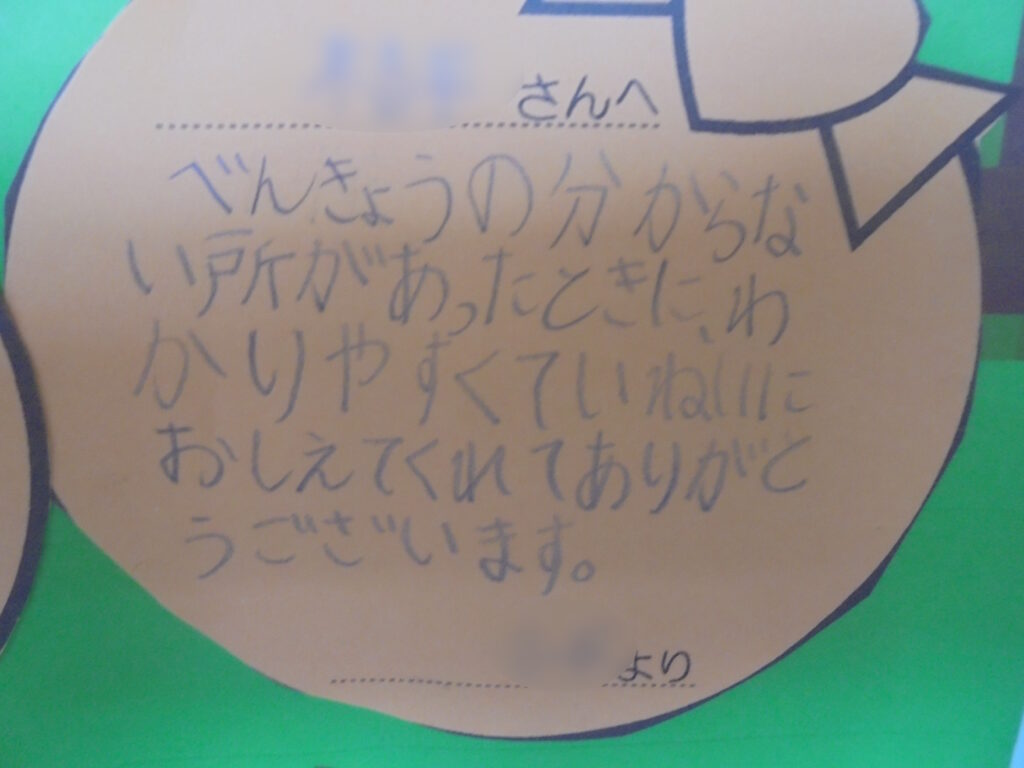 さんへ
べんきょうの分からな
い所があったときに、わ
かりやすくていねいに
おしえてくれてありがと
うございます。
より